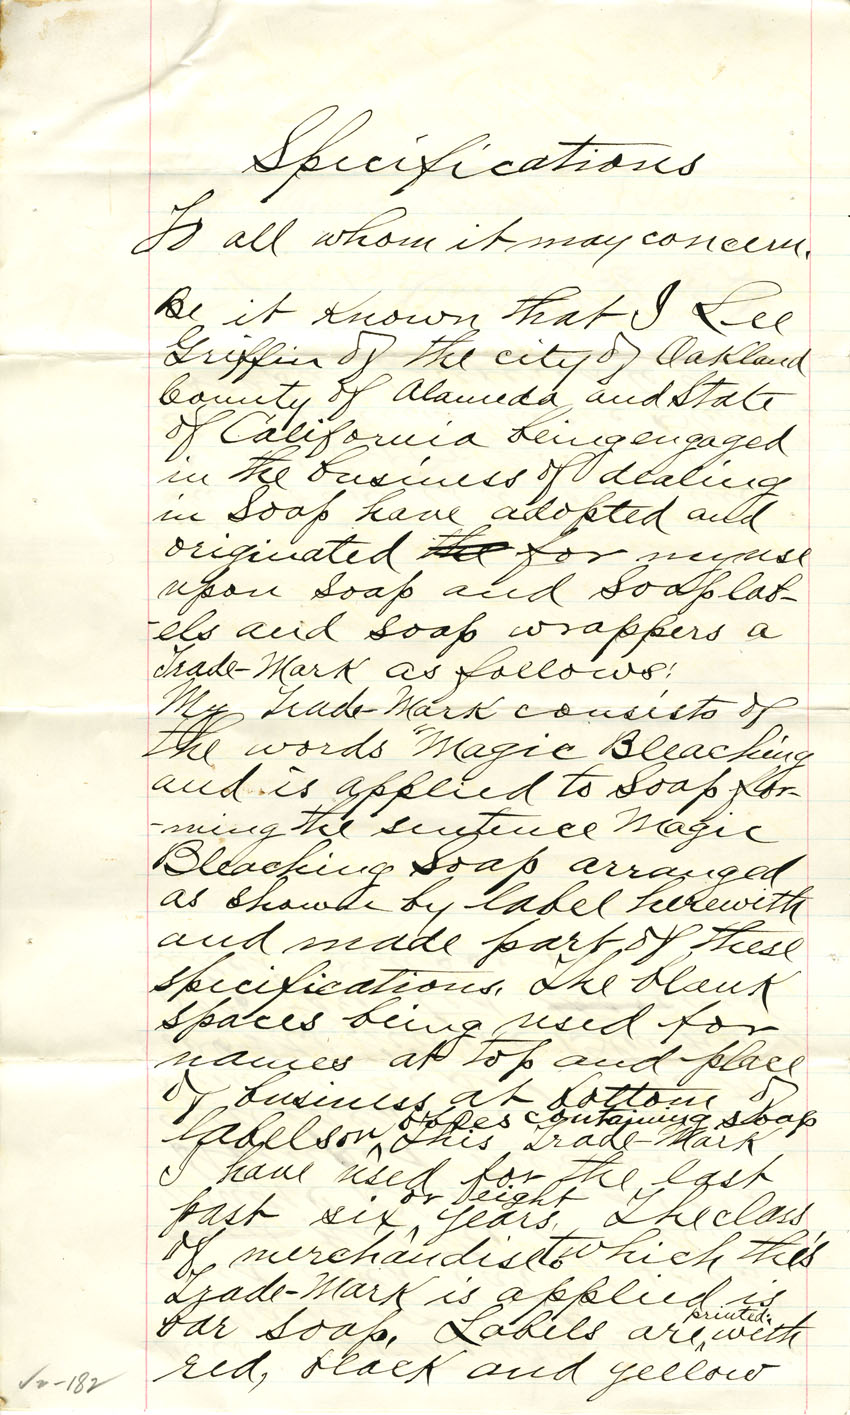 Specifications
To all whom it may concern.
Be it known that I Lee
Griffin of the city of Oakland
County of Alameda and State
of California being engaged
in the business of dealing
in Soap have adopted and
originated the for my use
upon soap and soap lab-
-els and soap wrappers a
Trade-Mark as follows:
My Trade-Mark consists of
the words "Magic Bleaching
and is applied to Soap for-
-ming the sentence Magic
Bleaching Soap arranged
as shown by label herewith
and made part of these
specifications. The blank
spaces being used for
names at top and place
of business at bottom of
boxes containing soap
labels or this Trade-Mark
I have used for the last
or eight
past six years. The class
of merchandise to which this
Trade-Mark is applied is
bar soap. Labels are with
printed
red, black and yellow